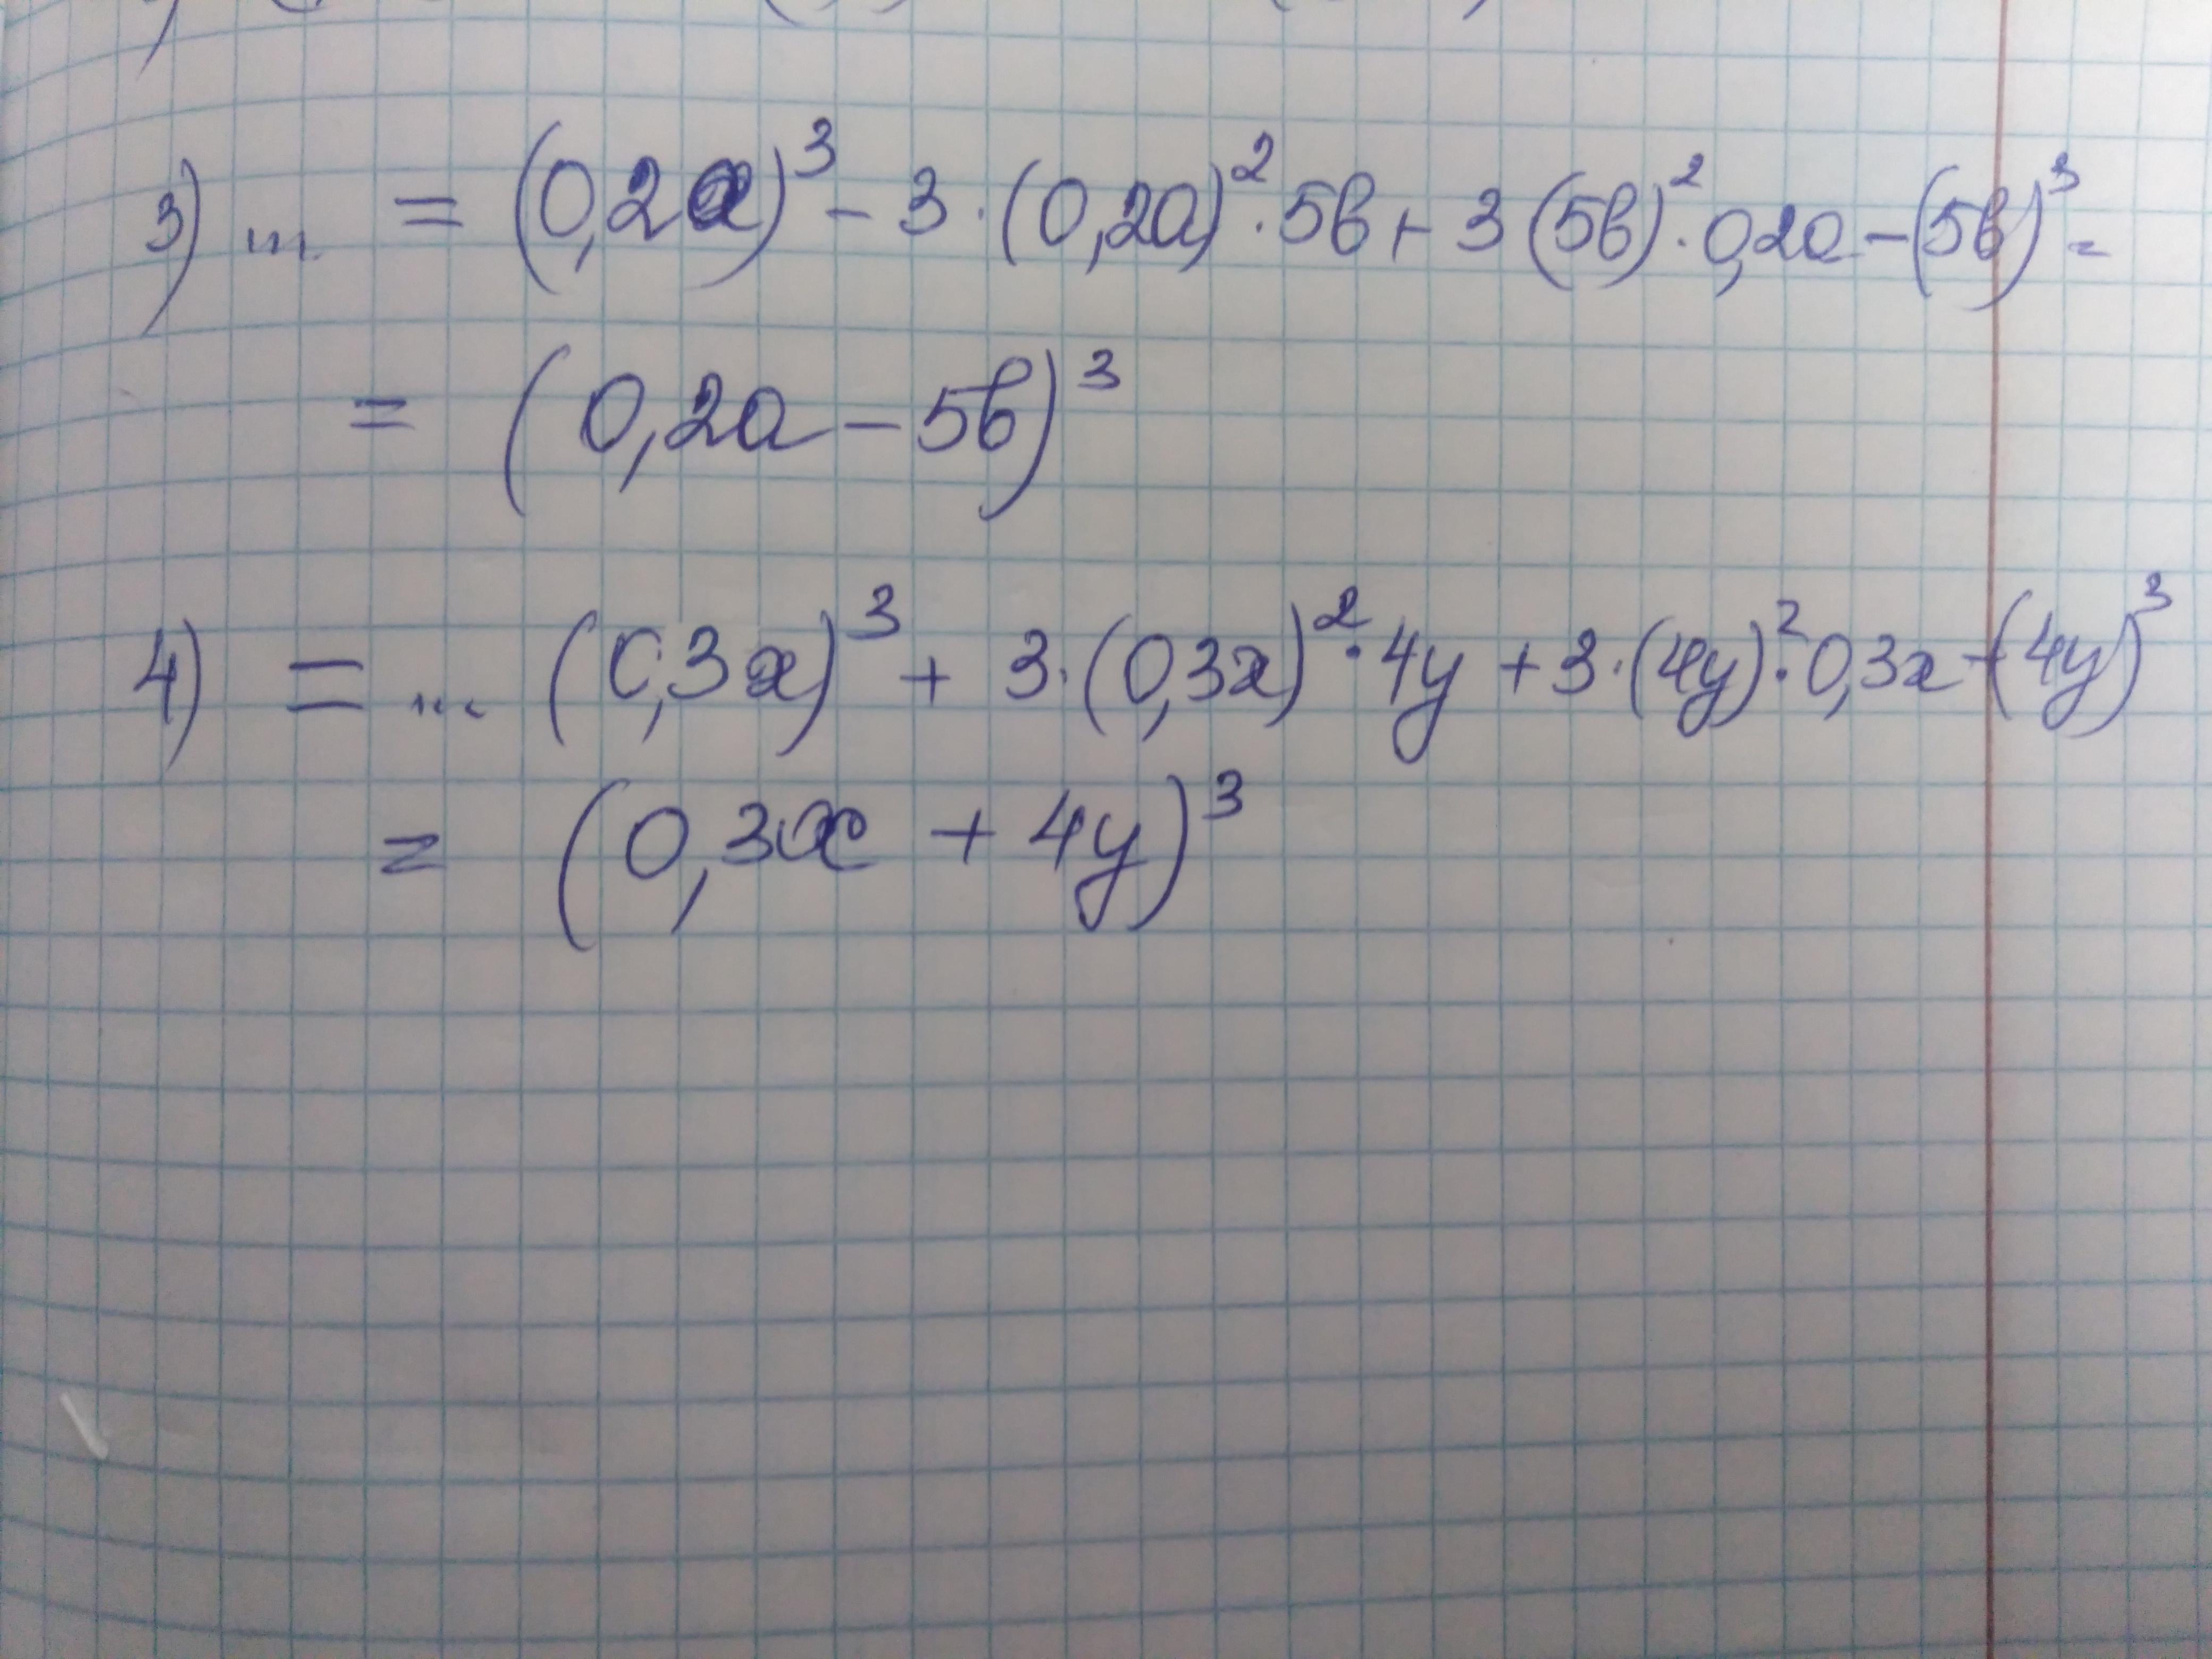 3) ... = (0,2a)³ - 3·(0,2a)²·5b + 3(5b)²·0,2a - (5b)³ =
= (0,2a - 5b)³
4) = ... (0,3x)³ + 3·(0,3x)²·4y + 3·(4y)²·0,3x + (4y)³
= (0,3x + 4y)³